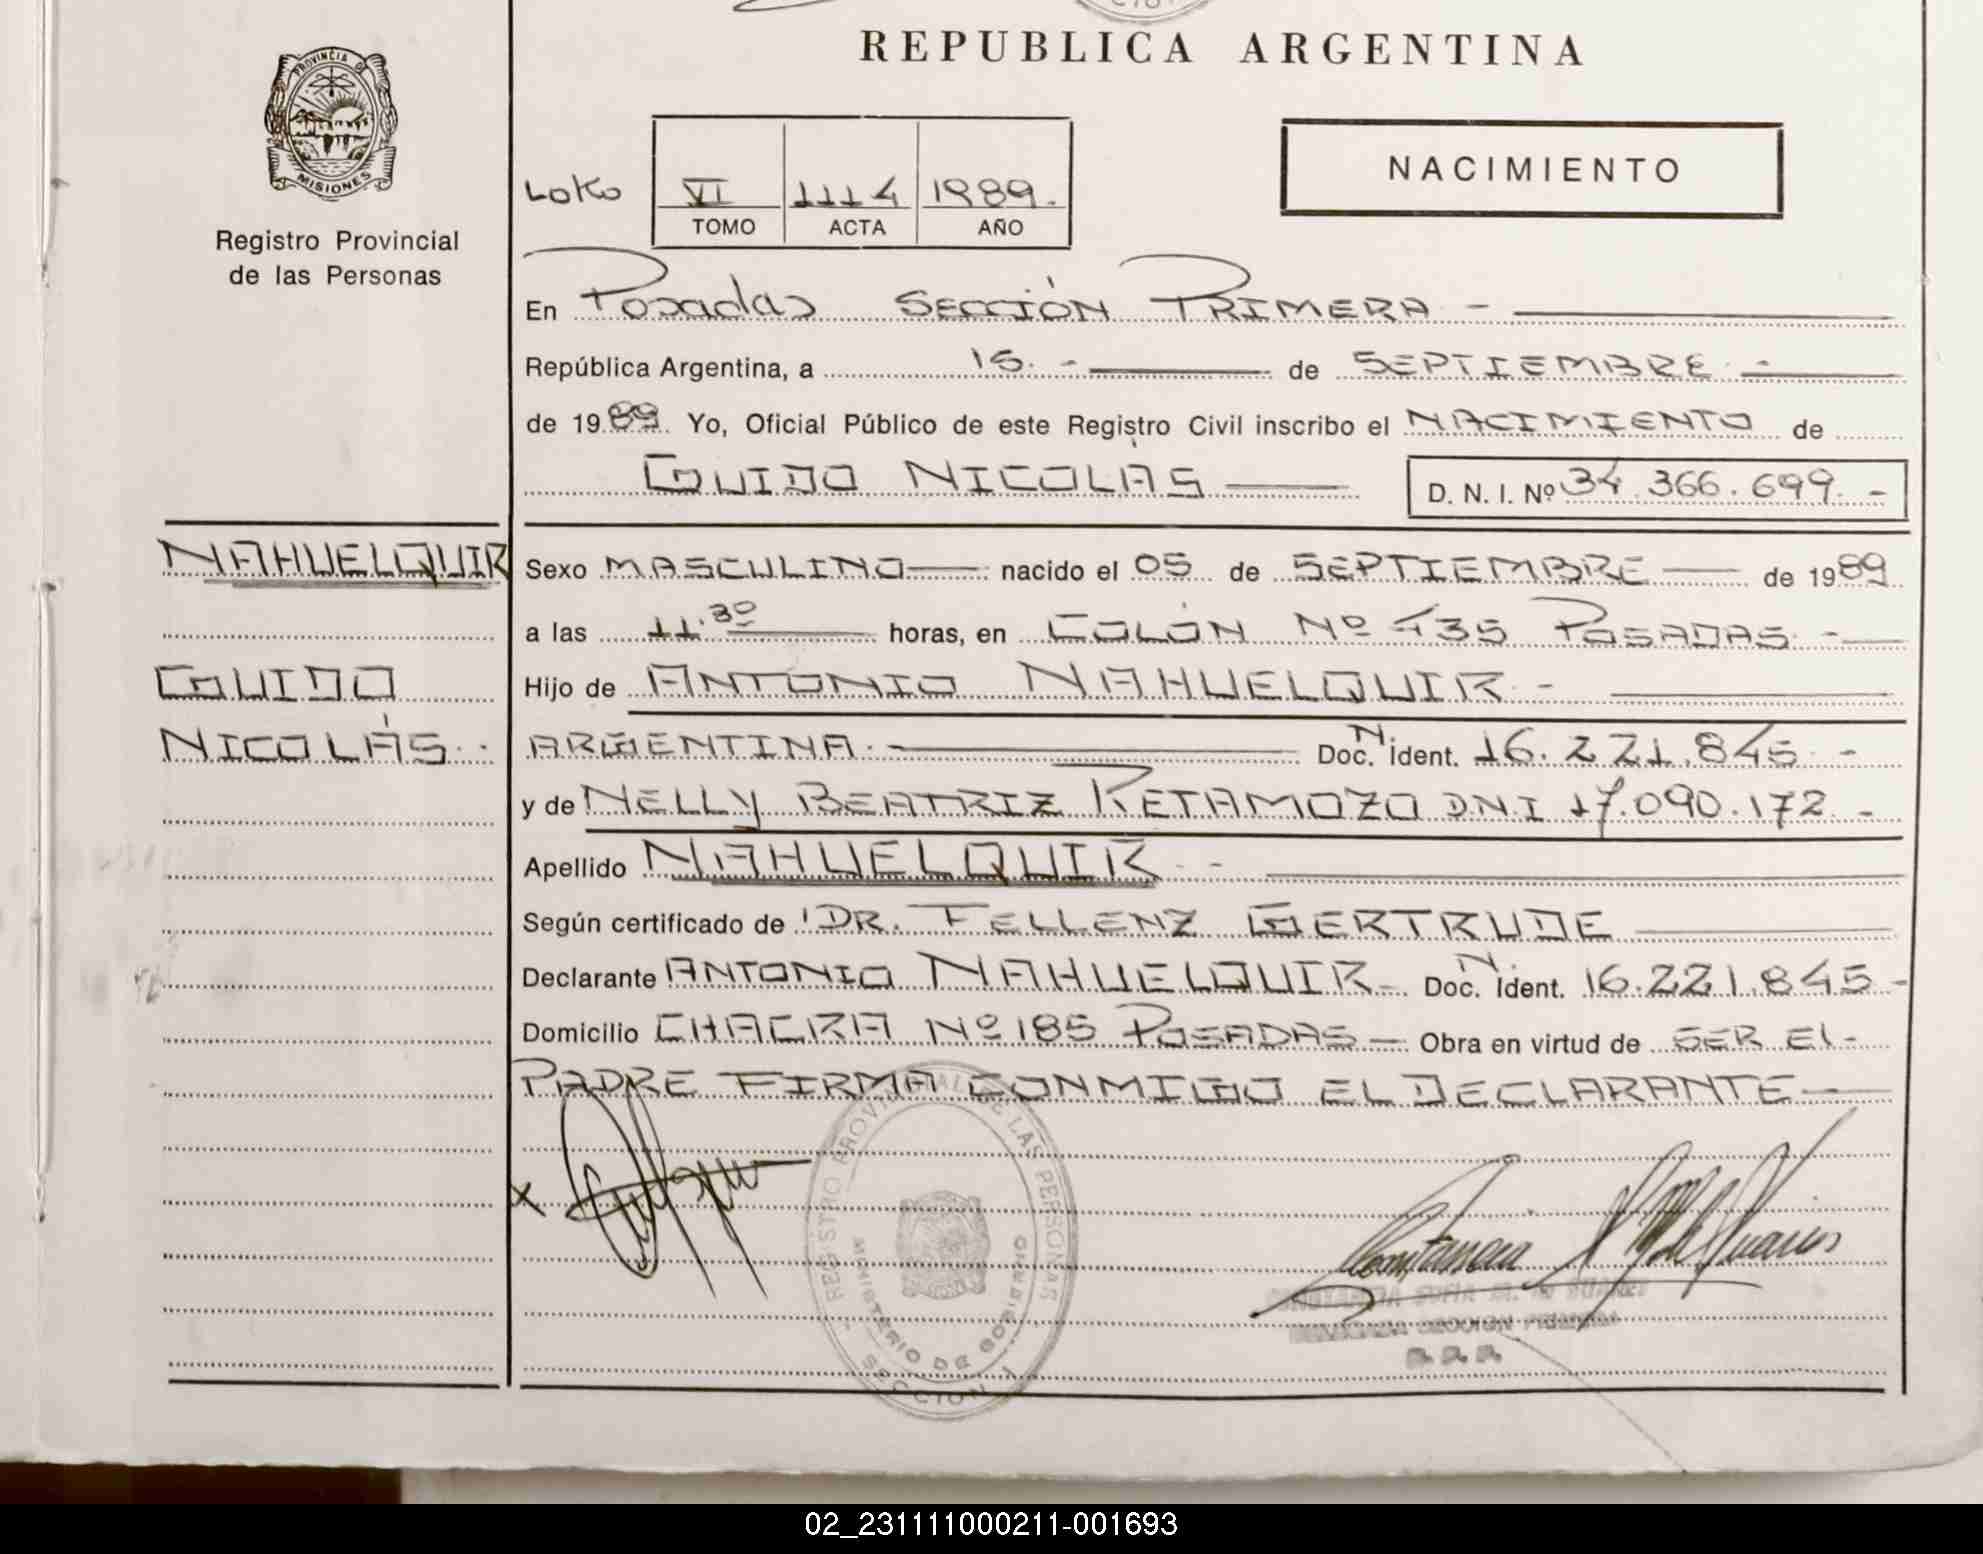 REPUBLICA ARGENTINA
PROVINCIA D
MISIONES
Registro Provincial
de las Personas
VI 1114 1989.
TOMO ACTA AÑO
NACIMIENTO
En Posadas SECCIÓN PRIMERA -
República Argentina, a 15. - de SEPTIEMBRE -
de 1989. Yo, Oficial Público de este Registro Civil inscribo el NACIMIENTO de
GUIDO NICOLÁS
D. N. I. Nº 34.366.699. -
NAHUELQUIR
GUIDO
NICOLÁS.
Sexo MASCULINO nacido el 05 de SEPTIEMBRE de 1989
a las 11.30 horas, en COLÓN Nº 435 POSADAS. -
Hijo de ANTONIO NAHUELQUIR -
ARGENTINA. Doc. N. ident. 16.221.845 -
y de NELLY BEATRIZ RETAMOZO D.N.I 17.090.172. -
Apellido NAHUELQUIR -
Según certificado de DR. FELLENZ GERTRUDE
Declarante ANTONIO NAHUELQUIR - Doc. N. ident. 16.221.845 -
Domicilio CHACRA Nº 185 POSADAS - Obra en virtud de SER El -
PADRE FIRMA CONMIGO EL DECLARANTE -
x
REGISTRO PROVINCIAL DE LAS PERSONAS
MINISTERIO DE GOBIERNO
SECCION 1
Constancia
SECCION PRIMERA
R.P.P.
02_231111000211-001693